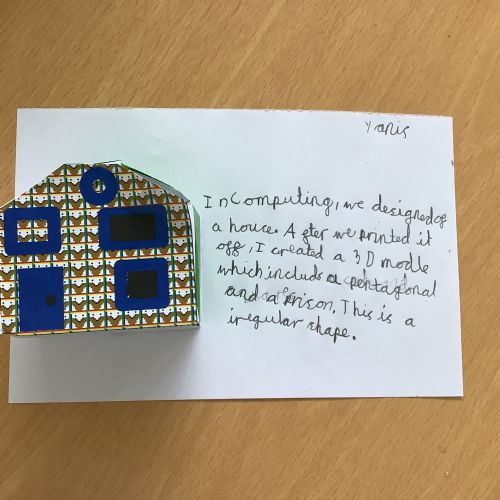 Yanis
In Computing, we designed
a house. After we printed it
off, I created a 3D modle
which include a pentagonal
and a Prison. This is a
irregular shape.